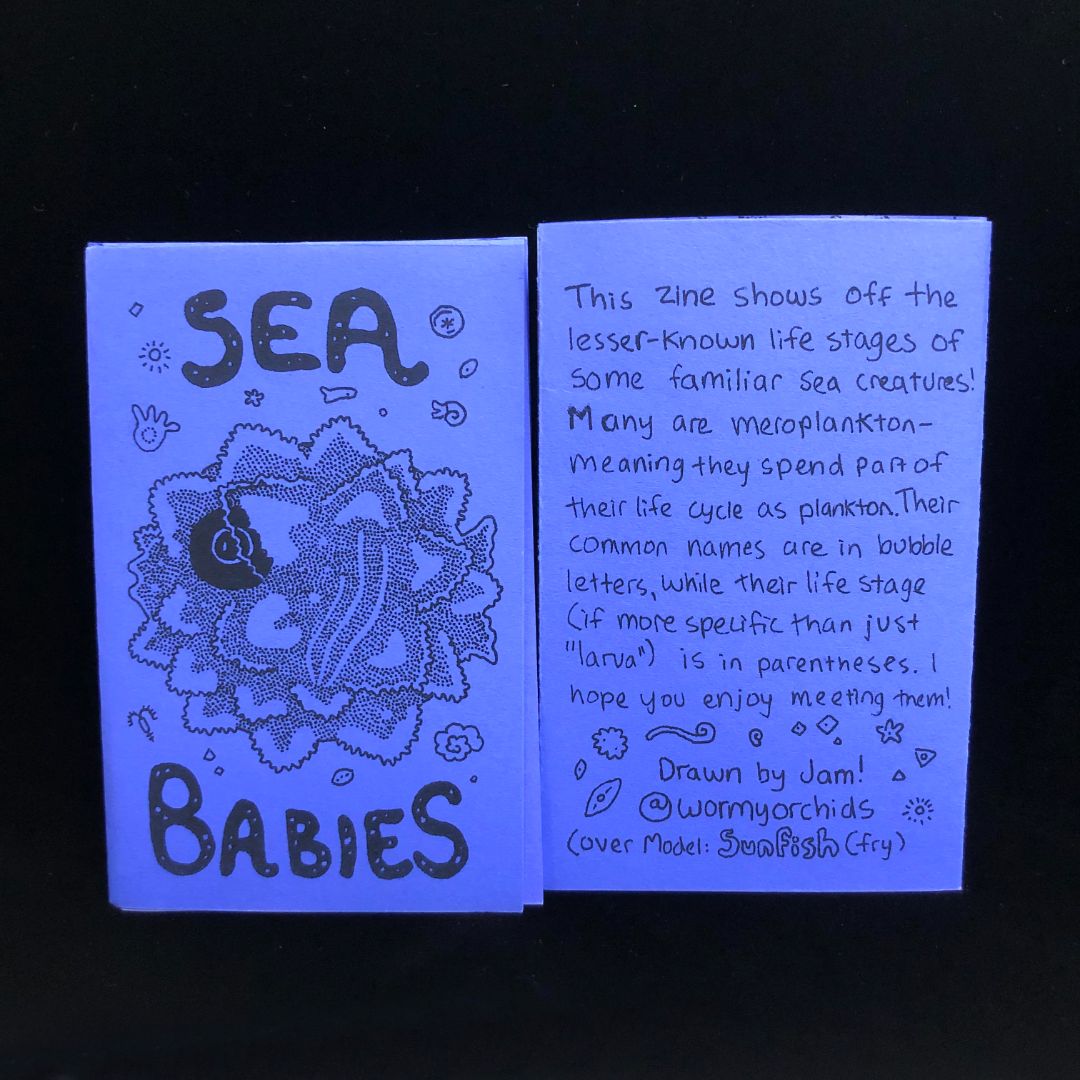 SEA
BABIES
This zine shows off the
lesser-known life stages of
some familiar sea creatures!
Many are meroplankton-
meaning they spend part of
their life cycle as plankton. Their
common names are in bubble
letters, while their life stage
(if more specific than just
"larva") is in parentheses. I
hope you enjoy meeting them!
Drawn by Jam!
@wormyorchids
Cover Model: Sunfish (fry)